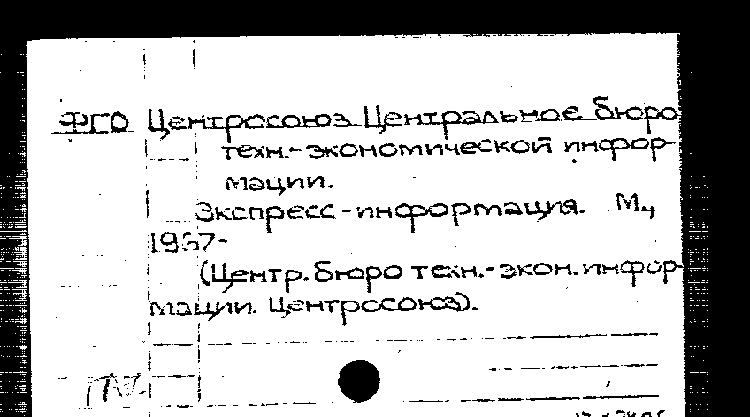 ФГО Центросоюз Центральное бюро
техн.-экономической инфор-
мации.
Экспресс-информация. М.,
1967-
(Центр. бюро техн.-экон. инфор-
мации. Центросоюз).